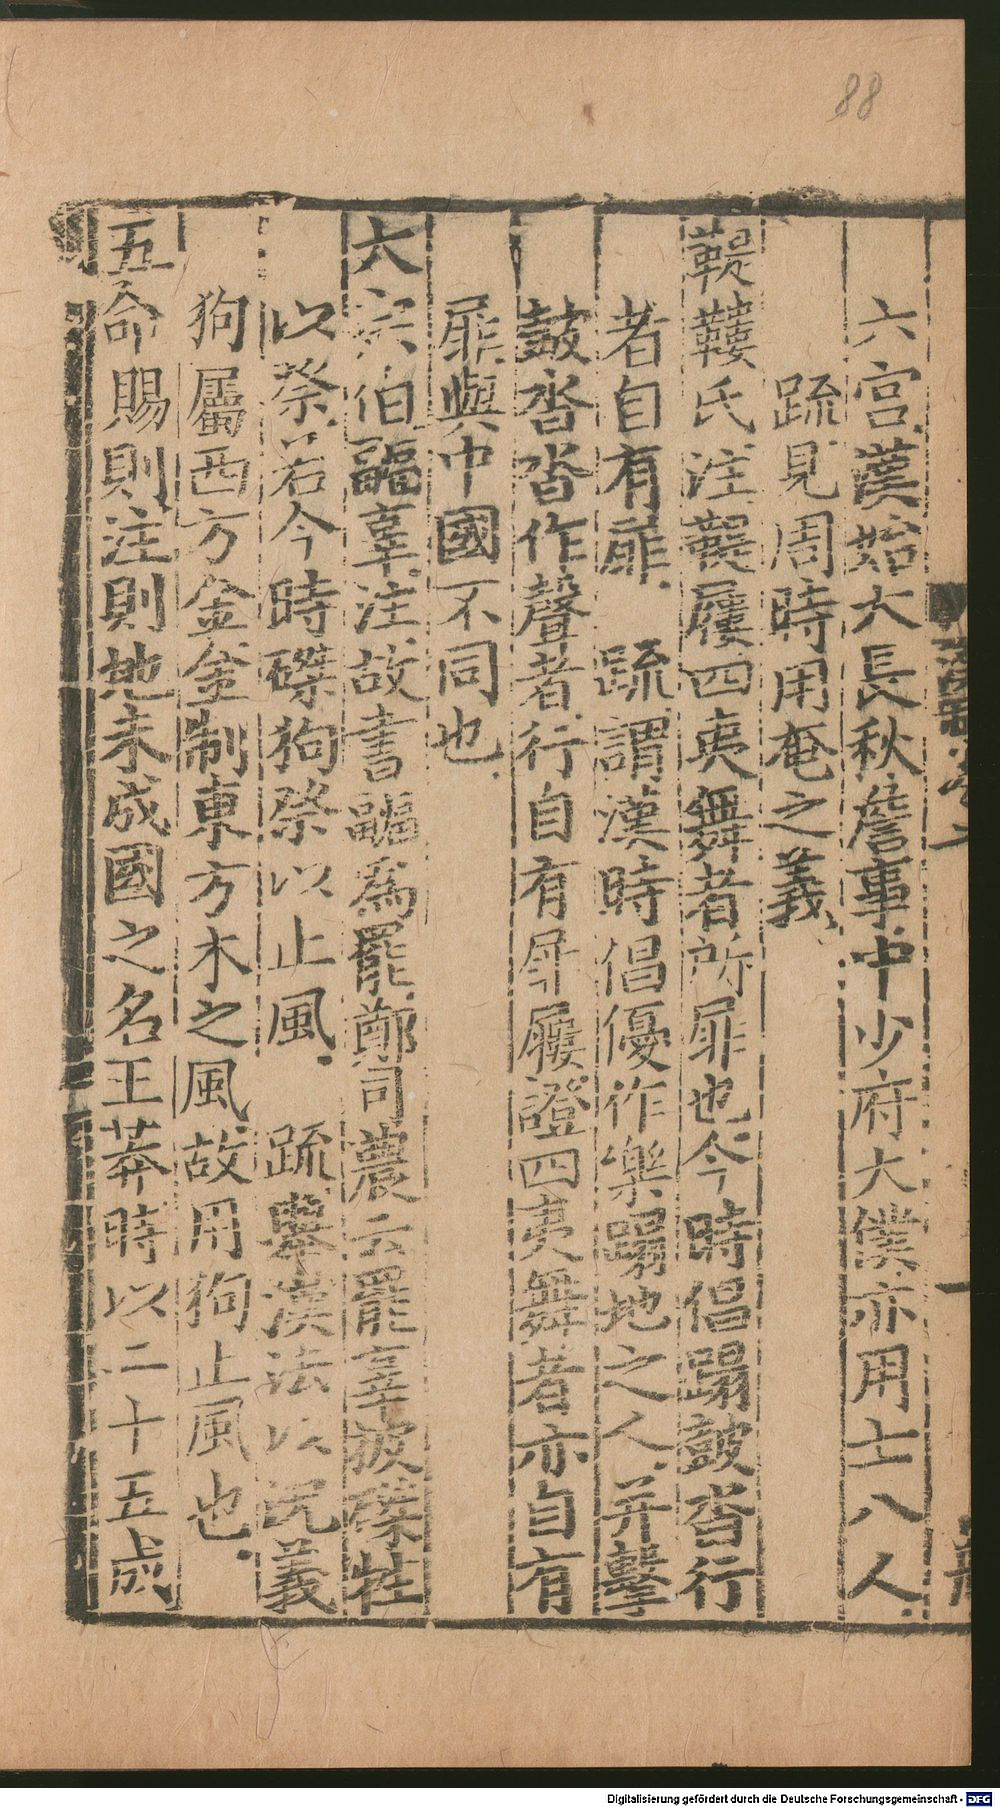 88
六宮漢始大長秋詹事中少府大僕亦用士八人
疏見周時用奄之義
鞮鞻氏注鞮屨四夷舞者所屝也今時倡蹋鼓沓行
者自有屝 疏謂漢時倡優作樂蹋地之人并擊
鼓沓沓作聲者行自有屝屨證四夷舞者亦自有
屝與中國不同也
大宗伯疈辜注故書疈為罷鄭司農云罷辜披磔牲
以祭若今時磔狗祭以止風 疏舉漢法以況義
狗屬西方金金制東方木之風故用狗止風也
五命賜則注則地未成國之名王莽時以二十五成
Digitalisierung gefördert durch die Deutsche Forschungsgemeinschaft - DFG